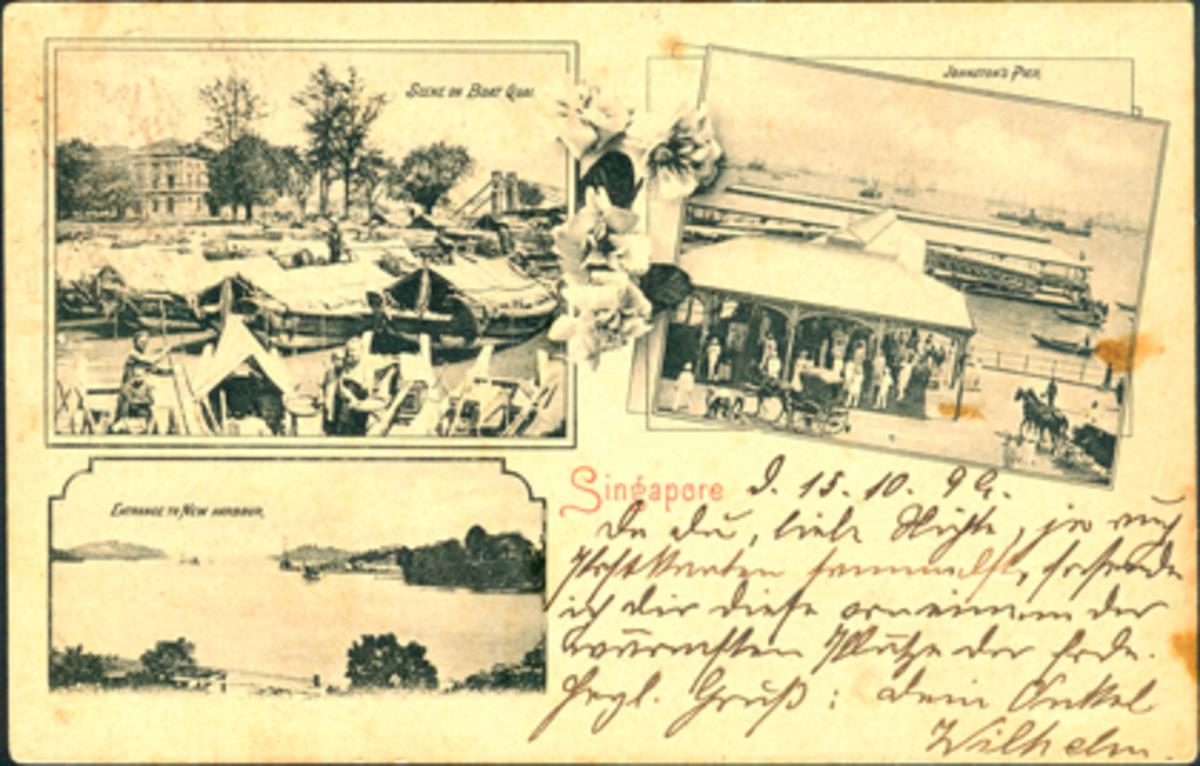 Scene on Boat Quai.
Johnston's Pier.
Entrance to New Harbour.
Singapore d. 15. 10. 9
Da du, liebe Nichte, ja auch
Postkarten sammelst, so sende
ich dir diese von einem der
wärmsten Plätze der Erde.
Herzl. Gruß: dein Onkel
Wilhelm.